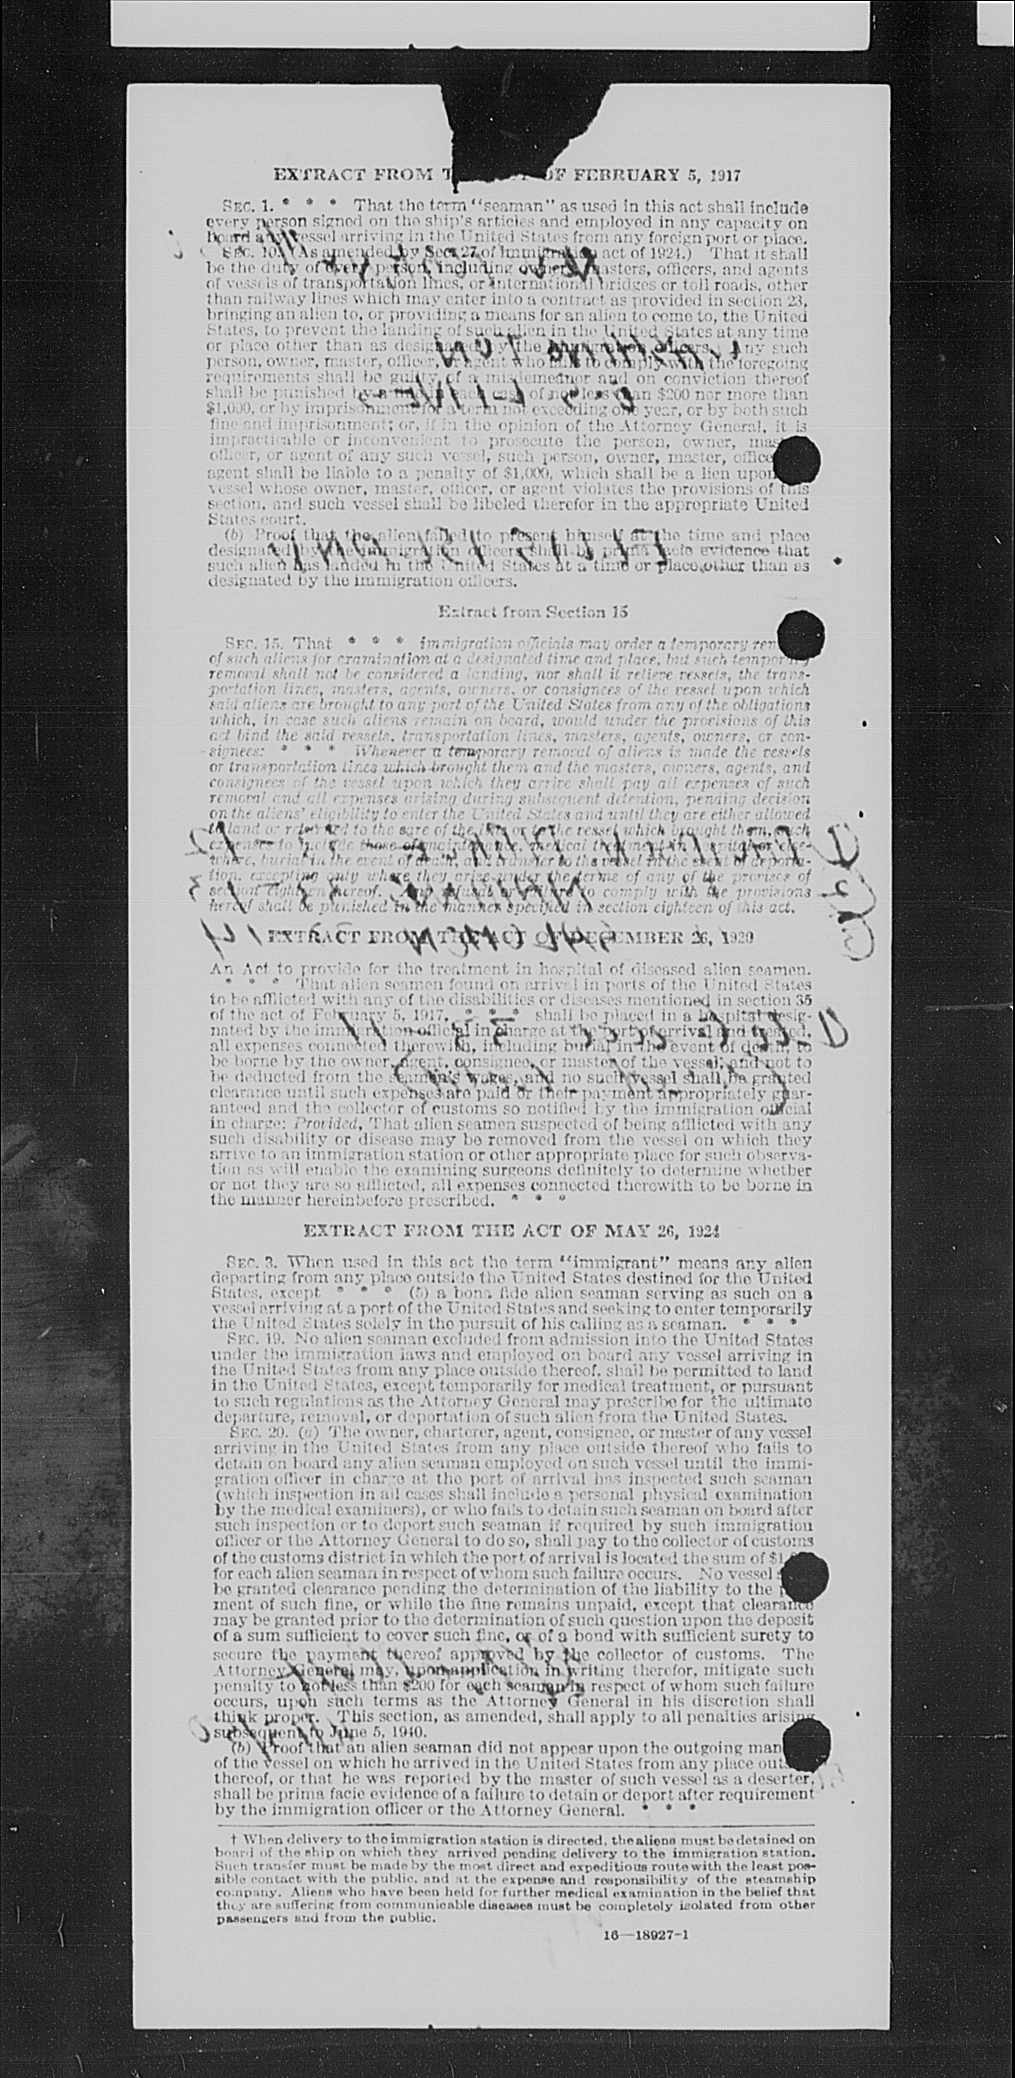 EXTRACT FROM OF FEBRUARY 5, 1917
SEC. 1. * * * That the term "seaman" as used in this act shall include
every person signed on the ship's articles and employed in any capacity on
board any vessel arriving in the United States from any foreign port or place.
SEC. 10. (As amended by Sec. 27 of Immigration act of 1924.) That it shall
be the duty of every person, including owners, masters, officers, and agents
of vessels of transportation lines, or international bridges or toll roads, other
than railway lines which may enter into a contract as provided in section 23,
bringing an alien to, or providing a means for an alien to come to, the United
States, to prevent the landing of such alien in the United States at any time
or place other than as designated by the immigration officers. Any such
person, owner, master, officer, or agent who fails to comply with the foregoing
requirements shall be guilty of a misdemeanor and on conviction thereof
shall be punished by a in each case of not less than $200 nor more than
$1,000, or by imprisonment for a term not exceeding one year, or by both such
fine and imprisonment; or, if in the opinion of the Attorney General, it is
impracticable or inconvenient to prosecute the person, owner, mas
officer, or agent of any such vessel, such person, owner, master, office
agent shall be liable to a penalty of $1,000, which shall be a lien upon
vessel whose owner, master, officer, or agent violates the provisions of this
section, and such vessel shall be libeled therefor in the appropriate United
States court.
(b) Proof that the alien failed to present himself at the time and place
designated by the immigration officers shall be prima facie evidence that
such alien has landed in the United States at a time or place other than as
designated by the immigration officers.
Extract from Section 15
SEC. 15. That * * * immigration officials may order a temporary rem
of such aliens for examination at a designated time and place, but such temporary
removal shall not be considered a landing, nor shall it relieve vessels, the trans-
portation lines, masters, agents, owners, or consignees of the vessel upon which
said aliens are brought to any port of the United States from any of the obligations
which, in case such aliens remain on board, would under the provisions of this
act bind the said vessels, transportation lines, masters, agents, owners, or con-
signees: * * * Whenever a temporary removal of aliens is made the vessels
or transportation lines which brought them and the masters, owners, agents, and
consignees of the vessel upon which they arrive shall pay all expenses of such
removal and all expenses arising during subsequent detention, pending decision
on the aliens' eligibility to enter the United States and until they are either allowed
to land or returned to the care of the line or to the vessel which brought them, such
expenses to include those of maintenance, medical treatment in hospital or else-
where, burial in the event of death, and transfer to the vessel in the event of deporta-
tion, excepting only where they arise under the terms of any of the provisos of
section eighteen hereof. Any refusal or failure to comply with the provisions
hereof shall be punished in the manner specified in section eighteen of this act.
EXTRACT FROM THE ACT OF DECEMBER 26, 1920
An Act to provide for the treatment in hospital of diseased alien seamen.
* * * That alien seamen found on arrival in ports of the United States
to be afflicted with any of the disabilities or diseases mentioned in section 35
of the act of February 5, 1917, * * * shall be placed in a hospital desig-
nated by the immigration official in charge at the port of arrival and treated,
all expenses connected therewith, including burial in the event of death, to
be borne by the owner, agent, consignee, or master of the vessel, and not to
be deducted from the seamen's wages, and no such vessel shall be granted
clearance until such expenses are paid or their payment appropriately guar-
anteed and the collector of customs so notified by the immigration official
in charge: Provided, That alien seamen suspected of being afflicted with any
such disability or disease may be removed from the vessel on which they
arrive to an immigration station or other appropriate place for such observa-
tion as will enable the examining surgeons definitely to determine whether
or not they are so afflicted, all expenses connected therewith to be borne in
the manner hereinbefore prescribed. * * *
EXTRACT FROM THE ACT OF MAY 26, 1924
SEC. 3. When used in this act the term "immigrant" means any alien
departing from any place outside the United States destined for the United
States, except * * * (5) a bona fide alien seaman serving as such on a
vessel arriving at a port of the United States and seeking to enter temporarily
the United States solely in the pursuit of his calling as a seaman. * * *
SEC. 19. No alien seaman excluded from admission into the United States
under the immigration laws and employed on board any vessel arriving in
the United States from any place outside thereof, shall be permitted to land
in the United States, except temporarily for medical treatment, or pursuant
to such regulations as the Attorney General may prescribe for the ultimate
departure, removal, or deportation of such alien from the United States.
SEC. 20. (a) The owner, charterer, agent, consignee, or master of any vessel
arriving in the United States from any place outside thereof who fails to
detain on board any alien seaman employed on such vessel until the immi-
gration officer in charge at the port of arrival has inspected such seaman
(which inspection in all cases shall include a personal physical examination
by the medical examiners), or who fails to detain such seaman on board after
such inspection or to deport such seaman if required by such immigration
officer or the Attorney General to do so, shall pay to the collector of customs
of the customs district in which the port of arrival is located the sum of $1
for each alien seaman in respect of whom such failure occurs. No vessel
be granted clearance pending the determination of the liability to the
ment of such fine, or while the fine remains unpaid, except that clearance
may be granted prior to the determination of such question upon the deposit
of a sum sufficient to cover such fine, or of a bond with sufficient surety to
secure the payment thereof approved by the collector of customs. The
Attorney General may, upon application in writing therefor, mitigate such
penalty to not less than $200 for each seaman in respect of whom such failure
occurs, upon such terms as the Attorney General in his discretion shall
think proper. This section, as amended, shall apply to all penalties arising
subsequent to June 5, 1940.
(b) Proof that an alien seaman did not appear upon the outgoing man
of the vessel on which he arrived in the United States from any place outs
thereof, or that he was reported by the master of such vessel as a deserter,
shall be prima facie evidence of a failure to detain or deport after requirement
by the immigration officer or the Attorney General. * * *
† When delivery to the immigration station is directed, the aliens must be detained on
board of the ship on which they arrived pending delivery to the immigration station.
Such transfer must be made by the most direct and expeditious route with the least pos-
sible contact with the public, and at the expense and responsibility of the steamship
company. Aliens who have been held for further medical examination in the belief that
they are suffering from communicable diseases must be completely isolated from other
passengers and from the public.
16—18927-1